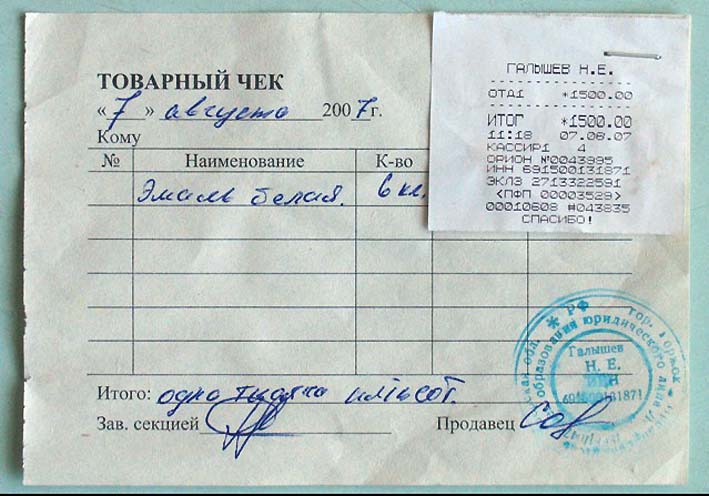 ТОВАРНЫЙ ЧЕК
« 7 » августа 2007г.
Кому
№ Наименование К-во
Эмаль белая. 6 кг.
Итого: одна тысяча пятьсот.
Зав. секцией
Продавец
ГАЛЫШЕВ Н.Е.
ОТД1 *1500.00
ИТОГ *1500.00
11:18 07.08.07
КАССИР1 4
ОРИОН №0043995
ИНН 691500131871
ЭКЛЗ 2713322591
<ПФП 00003529>
00010608 #043835
СПАСИБО!
* РФ гор. Торжок
образования юридического лица
Галышев
Н. Е.
ИНН
691500131871